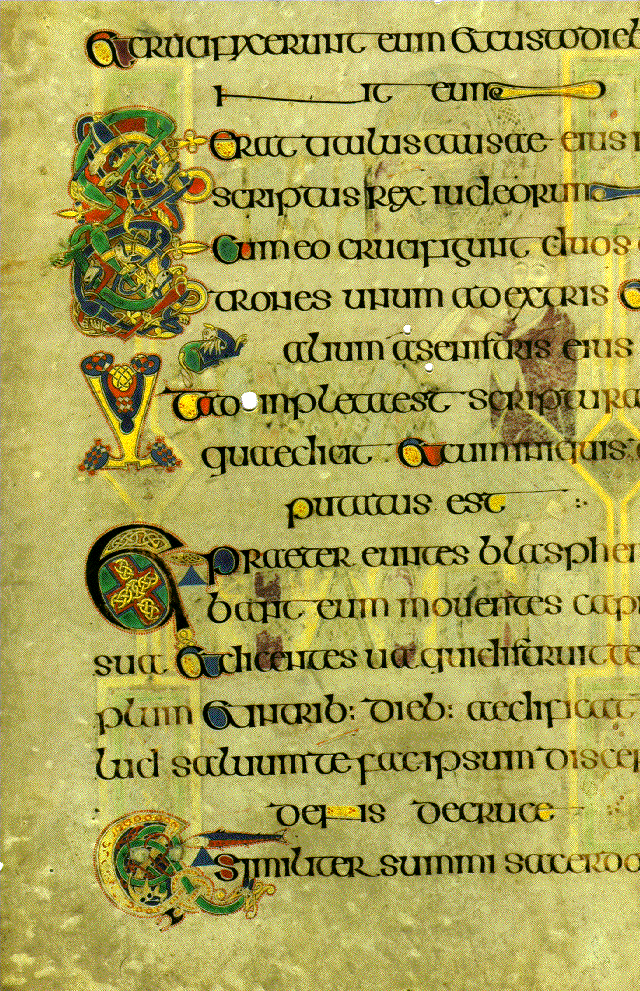 Et crucifixerunt eum Et custodieb
nt eum
Erat titulus causae eius
scriptus rex iudeorum
Et cum eo crucifigunt duos
Et latrones unum ad extris
alium a senistris eius
Ut ad inpleta est scriptura
quae dicit Et cum iniquis
putatus est
Et praeter euntes blasphe
bant eum mouentes capi
sua Et dicentes ua qui distruit te
plum Et in trib: dieb: aedificat
lud saluum te fac ipsum discen
dens de cruce
Et similiter summi sacerdo